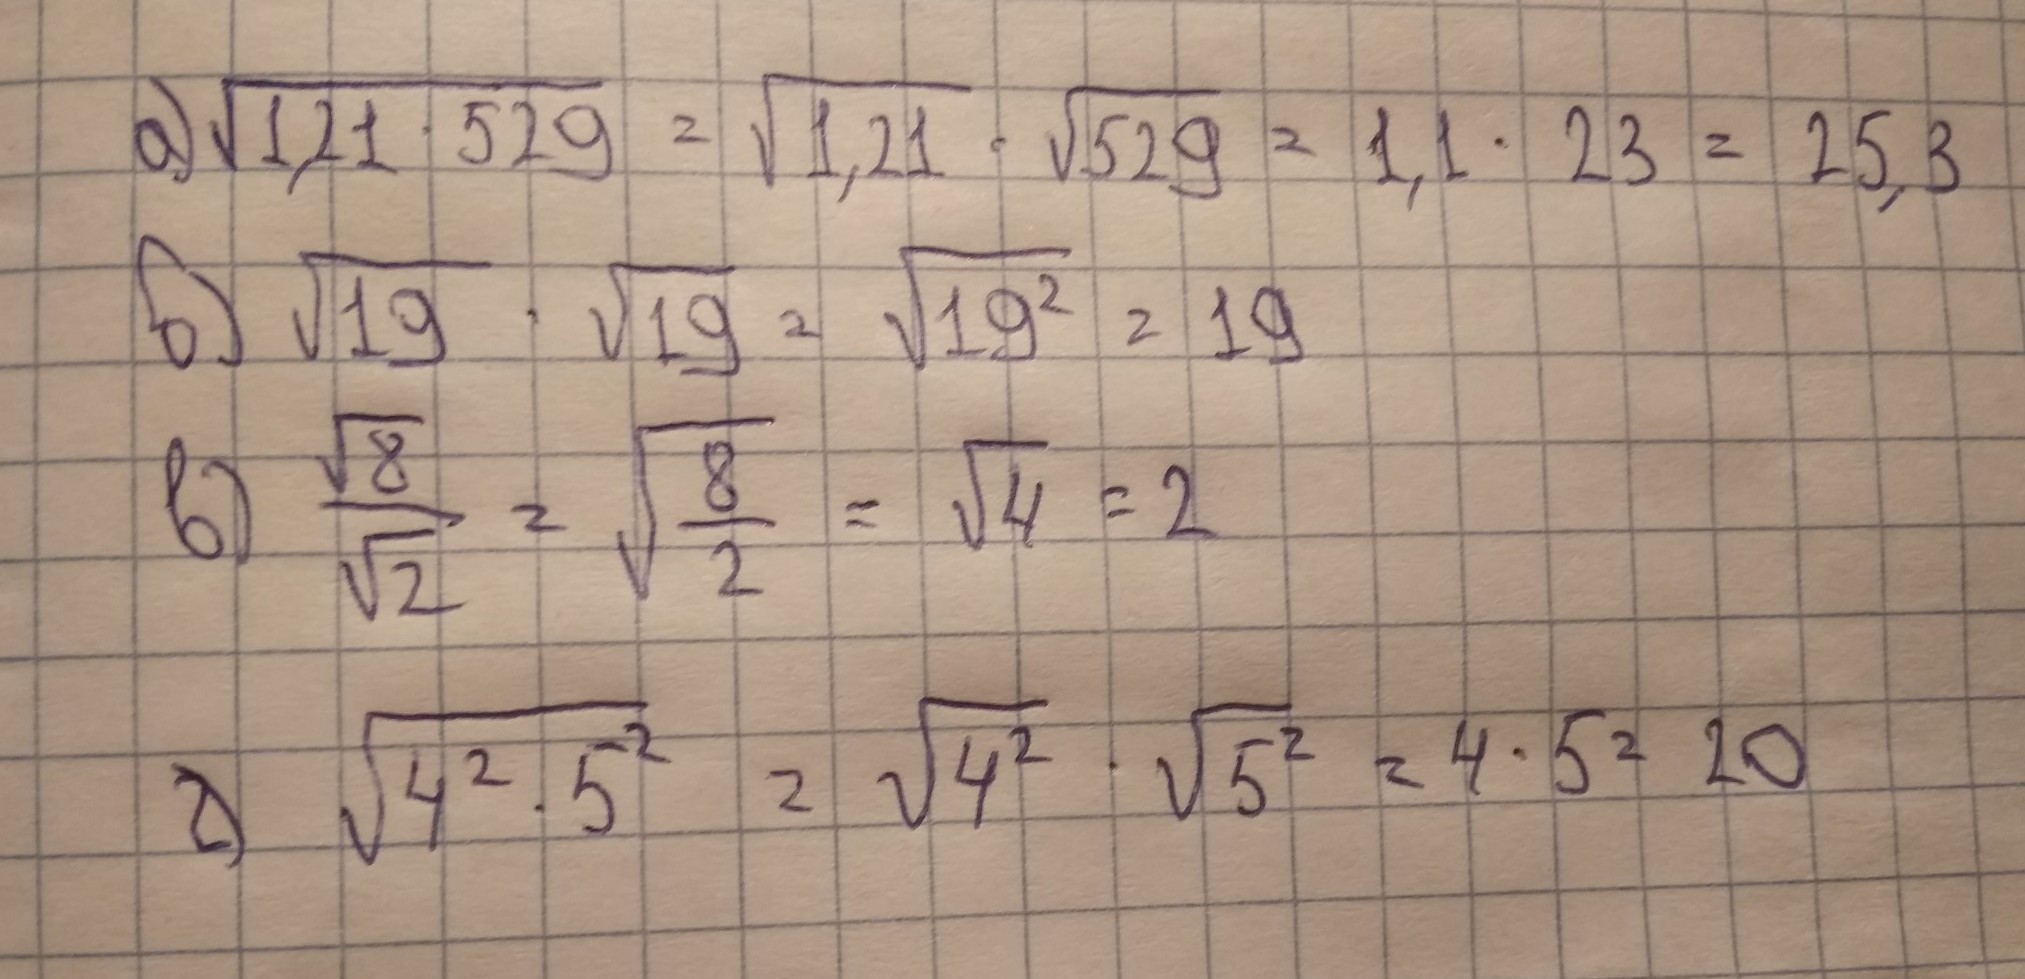 а) √(1,21 · 529) = √1,21 · √529 = 1,1 · 23 = 25,3
б) √19 · √19 = √19² = 19
в) √8/√2 = √(8/2) = √4 = 2
г) √(4² · 5²) = √4² · √5² = 4 · 5 = 20